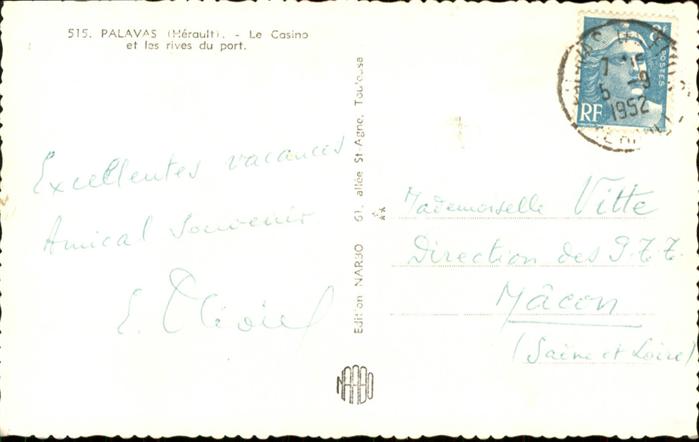 515. PALAVAS (Hérault). - Le Casino
et les rives du port.
Excellentes vacances
Amical Souvenir
E.
Edition NARBO 61, allée St-Agne, Toulouse
NARBO
POSTES
RF
7 15
5 -9
1952
Mademoiselle Vitte
Direction des P.T.T.
Mâcon
(Saône et Loire)